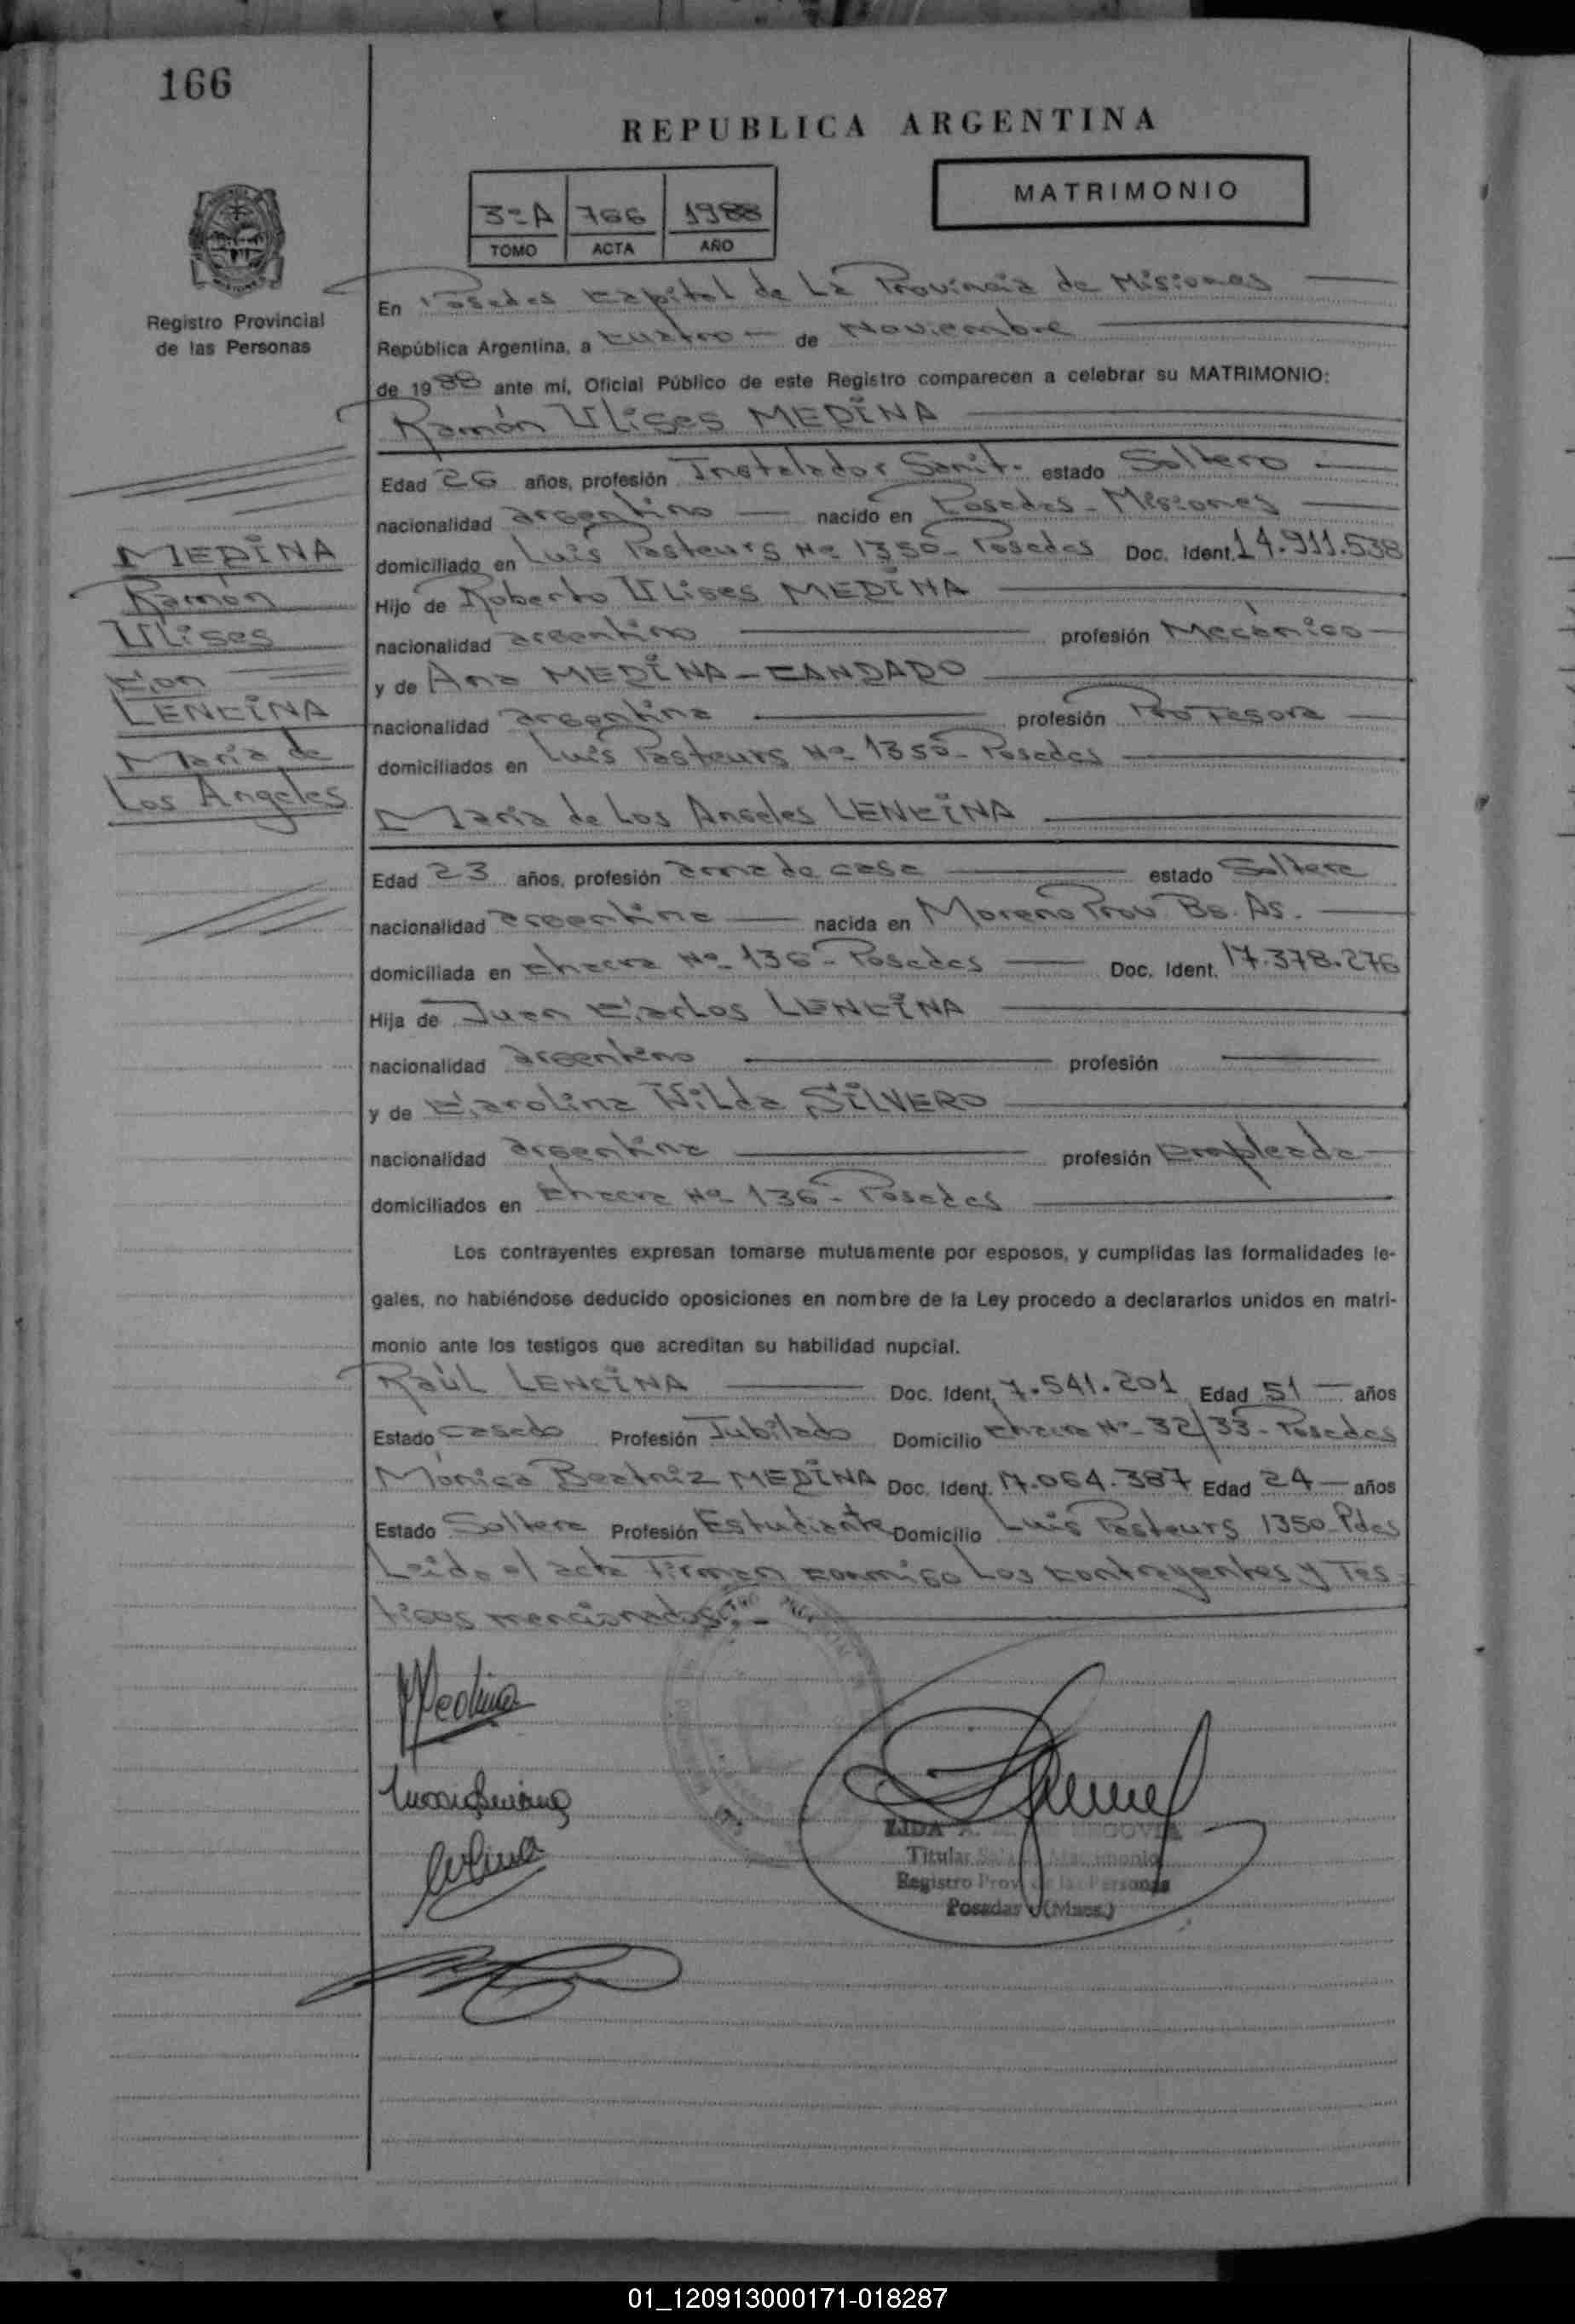 166
REPUBLICA ARGENTINA
MATRIMONIO
3ºA 766 1988
TOMO ACTA AÑO
Registro Provincial
de las Personas
En Posadas Capital de La Provincia de Misiones
República Argentina, a cuatro de Noviembre
de 1988 ante mí, Oficial Público de este Registro comparecen a celebrar su MATRIMONIO:
Ramón Ulises MEDINA
Edad 26 años, profesión Instalador Sanit. estado Soltero
nacionalidad argentino nacido en Posadas - Misiones
domiciliado en Luis Pasteurs Nº 1350 - Posadas Doc. Ident. 14.911.538
Hijo de Roberto Ulises MEDINA
nacionalidad argentino profesión Mecánico
y de Ana MEDINA - CANDADO
nacionalidad argentina profesión Profesora
domiciliados en Luis Pasteurs Nº 1350 - Posadas
MEDINA
Ramón
Ulises
Con
LENCINA
María de
Los Angeles
María de Los Angeles LENCINA
Edad 23 años, profesión ama de casa estado Soltera
nacionalidad argentina nacida en Moreno Prov. Bs. As.
domiciliada en Chacra Nº 136 - Posadas Doc. Ident. 17.378.276
Hija de Juan Carlos LENCINA
nacionalidad argentino profesión
y de Carolina Nilda SILVERO
nacionalidad argentina profesión Empleada
domiciliados en Chacra Nº 136 - Posadas
Los contrayentes expresan tomarse mutuamente por esposos, y cumplidas las formalidades le-
gales, no habiéndose deducido oposiciones en nombre de la Ley procedo a declararlos unidos en matri-
monio ante los testigos que acreditan su habilidad nupcial.
Raúl LENCINA Doc. Ident. 7.541.201 Edad 51 años
Estado casado Profesión Jubilado Domicilio Chacra Nº 32/33 - Posadas
Mónica Beatriz MEDINA Doc. Ident. 17.064.387 Edad 24 años
Estado Soltera Profesión Estudiante Domicilio Luis Pasteurs 1350 - Pdas
Leida el acta Firman conmigo Los contrayentes y Tes
tigos mencionados.-
Medina
LIDA SEGOVIA
Titular Matrimonio
Registro Prov. de las Personas
Posadas (Mnes.)
01_120913000171-018287